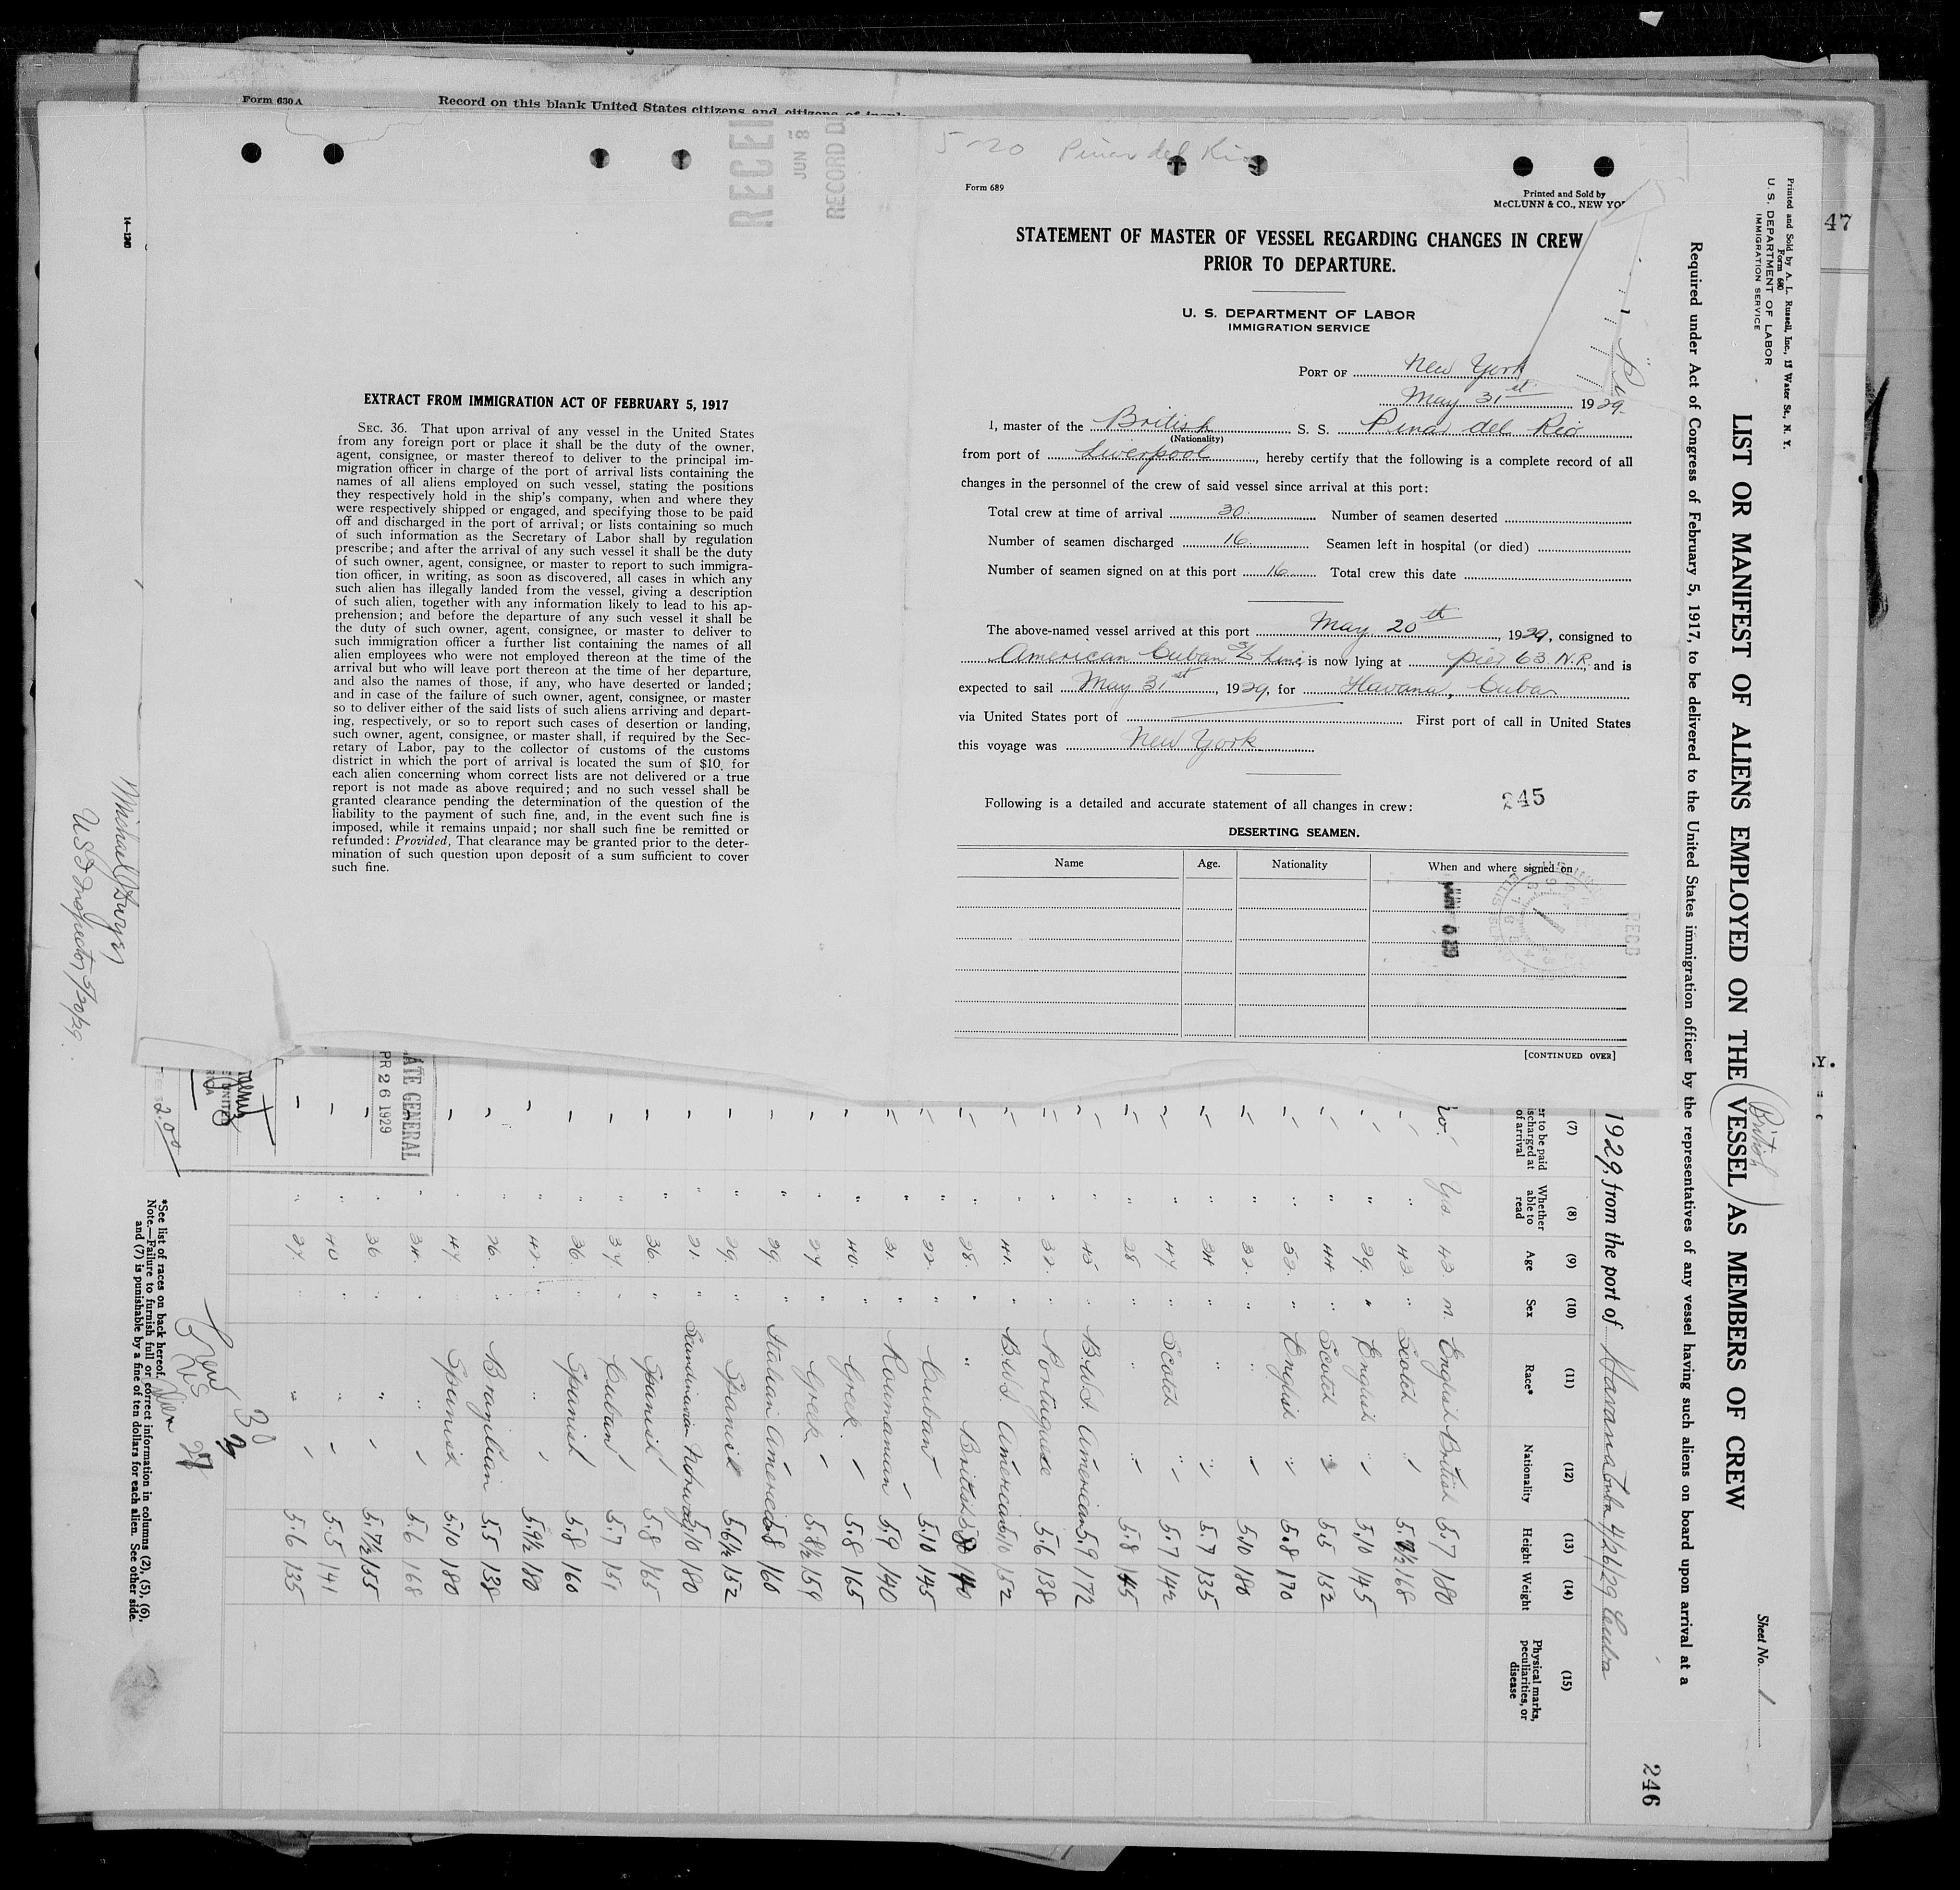 Form 630 A
Record on this blank United States citizens and citizens of insul
14—1240
JUN 8
RECORD D
EXTRACT FROM IMMIGRATION ACT OF FEBRUARY 5, 1917
SEC. 36. That upon arrival of any vessel in the United States
from any foreign port or place it shall be the duty of the owner,
agent, consignee, or master thereof to deliver to the principal im-
migration officer in charge of the port of arrival lists containing the
names of all aliens employed on such vessel, stating the positions
they respectively hold in the ship's company, when and where they
were respectively shipped or engaged, and specifying those to be paid
off and discharged in the port of arrival; or lists containing so much
of such information as the Secretary of Labor shall by regulation
prescribe; and after the arrival of any such vessel it shall be the duty
of such owner, agent, consignee, or master to report to such immigra-
tion officer, in writing, as soon as discovered, all cases in which any
such alien has illegally landed from the vessel, giving a description
of such alien, together with any information likely to lead to his ap-
prehension; and before the departure of any such vessel it shall be
the duty of such owner, agent, consignee, or master to deliver to
such immigration officer a further list containing the names of all
alien employees who were not employed thereon at the time of the
arrival but who will leave port thereon at the time of her departure,
and also the names of those, if any, who have deserted or landed;
and in case of the failure of such owner, agent, consignee, or master
so to deliver either of the said lists of such aliens arriving and depart-
ing, respectively, or so to report such cases of desertion or landing,
such owner, agent, consignee, or master shall, if required by the Sec-
retary of Labor, pay to the collector of customs of the customs
district in which the port of arrival is located the sum of $10. for
each alien concerning whom correct lists are not delivered or a true
report is not made as above required; and no such vessel shall be
granted clearance pending the determination of the question of the
liability to the payment of such fine, and, in the event such fine is
imposed, while it remains unpaid; nor shall such fine be remitted or
refunded: Provided, That clearance may be granted prior to the deter-
mination of such question upon deposit of a sum sufficient to cover
such fine.
5-20 Pinar del Rio
Form 689
Printed and Sold by
McCLUNN & CO., NEW YO
STATEMENT OF MASTER OF VESSEL REGARDING CHANGES IN CREW
PRIOR TO DEPARTURE.
U. S. DEPARTMENT OF LABOR
IMMIGRATION SERVICE
PORT OF New York
May 31st 1929.
I, master of the British S. S. Pinar del Rio
(Nationality)
from port of Liverpool, hereby certify that the following is a complete record of all
changes in the personnel of the crew of said vessel since arrival at this port:
Total crew at time of arrival 30. Number of seamen deserted
Number of seamen discharged 16. Seamen left in hospital (or died)
Number of seamen signed on at this port 16 Total crew this date
The above-named vessel arrived at this port May 20th, 1929, consigned to
American Cuban S/S Line, is now lying at pier 63 N.R. and is
expected to sail May 31st, 1929, for Havana, Cuba
via United States port of First port of call in United States
this voyage was New York
Following is a detailed and accurate statement of all changes in crew: 245
DESERTING SEAMEN.
Name Age. Nationality When and where signed on
REC'D
[CONTINUED OVER]
47
Printed and Sold by A. L. Russell, Inc., 13 Water St., N. Y.
Form 680
U. S. DEPARTMENT OF LABOR
IMMIGRATION SERVICE
Sheet No. 1
British
LIST OR MANIFEST OF ALIENS EMPLOYED ON THE VESSEL AS MEMBERS OF CREW
Required under Act of Congress of February 5, 1917, to be delivered to the United States immigration officer by the representatives of any vessel having such aliens on board upon arrival at a
246
1929, from the port of Havana 4/26/29 Cuba
(7) (8) (9) (10) (11) (12) (13) (14) (15)
er to be paid discharged at of arrival
Whether able to read
Age Sex Race* Nationality Height Weight
Physical marks, peculiarities, or disease
no. Yes. 43. m. English British 5.7 180
" 43. " Scotch " 5.7½ 168
" 39. " English " 5.10 145
" 44 " Scotch " 5.5 152
" 53. " English " 5.8 170
" 32. " " " 5.10 180
" 34 " " " 5.7 135
" 47 " Scotch " 5.7 142
" 28 " " " 5.8 145
" 43 " B.W.I. American 5.9 172
" 32. " Portuguese 5.6 138
" 41. " B.W.I. American 5.10 152
" 28. " " British 5.8 140
" 22. " Cuban 5.10 145
" 31. " Roumanian 5.9 140
" 40. " Greek 5.8 165
" 27 " Greek 5.8½ 159
" 29. " Italian American 5.8 160
" 29. " Spanish 5.6½ 152
" 21. " Scandinavian Norway 5.10 180
" 36. " Spanish 5.8 165
" 37 " Cuban 5.7 151
" 36. " Spanish 5.8 160
" 42. " " 5.9½ 180
" 26. " Brazilian 5.5 138
" 47. " Spanish 5.10 180
" 34. " " 5.6 168
" 36 " " 5.7½ 155
" 40 " " 5.5 141
" 27. " " 5.6 135
ATE GENERAL
PR 26 1929
2.00
Crew 30
US 3
Alien 27
*See list of races on back hereof.
Note.—Failure to furnish full or correct information in columns (2), (5), (6),
and (7) is punishable by a fine of ten dollars for each alien. See other side.
US Inspector 5/20/29.